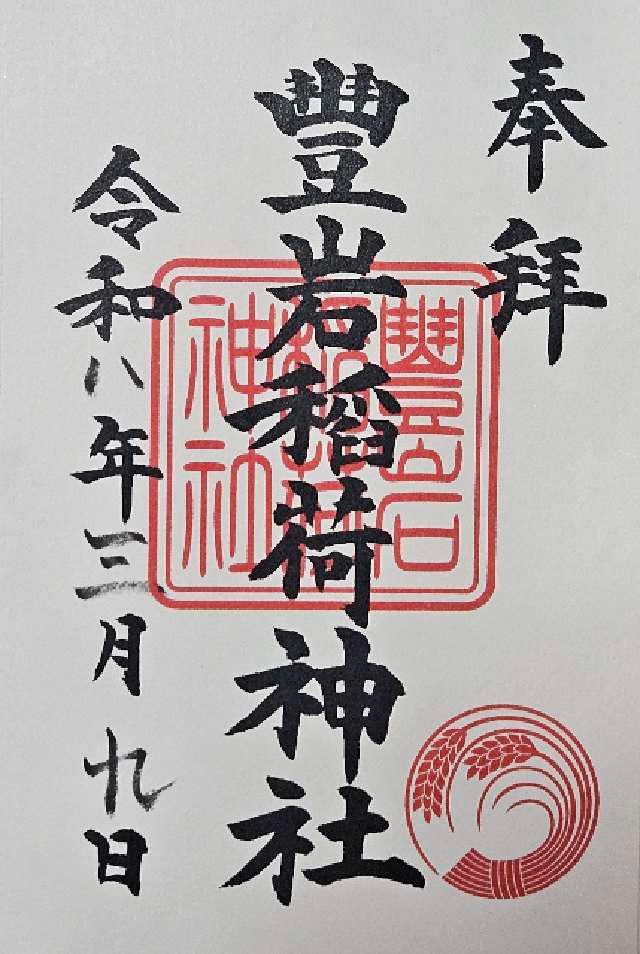 奉拝
豐岩稲荷神社
豐岩
稲荷
神社
令和八年三月九日